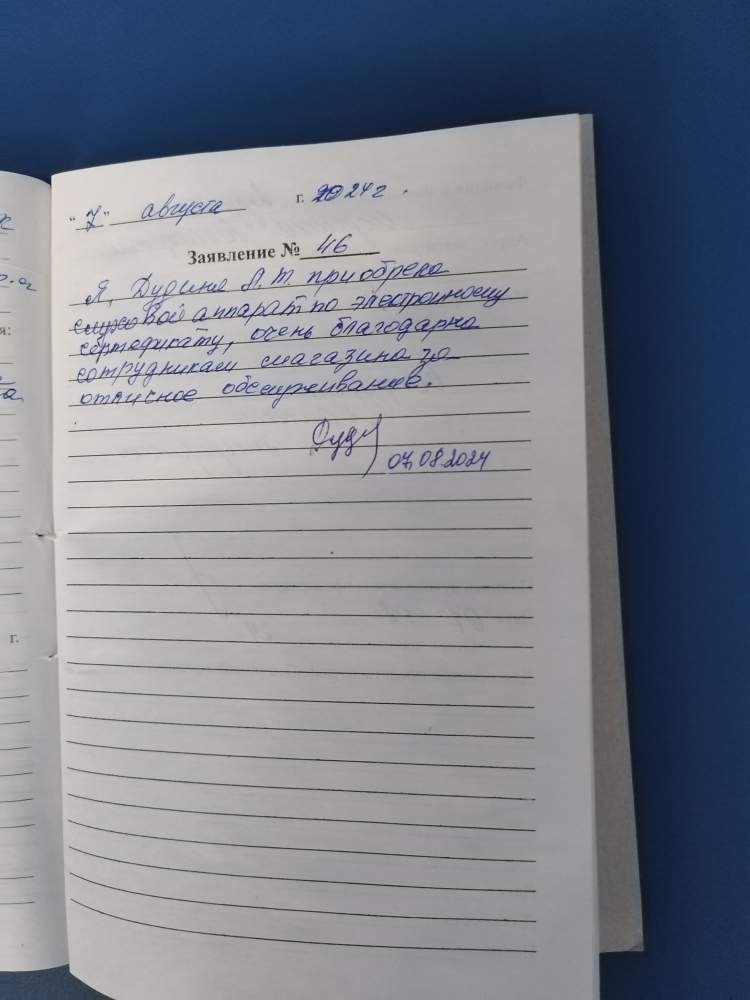 "7" августа г. 2024 г.
Заявление № 46
Я, Дудина А.Т. приобрела
слуховой аппарат по электронному
сертификату, очень благодарна
сотрудникам магазина за
отличное обслуживание.
07.08.2024
г.